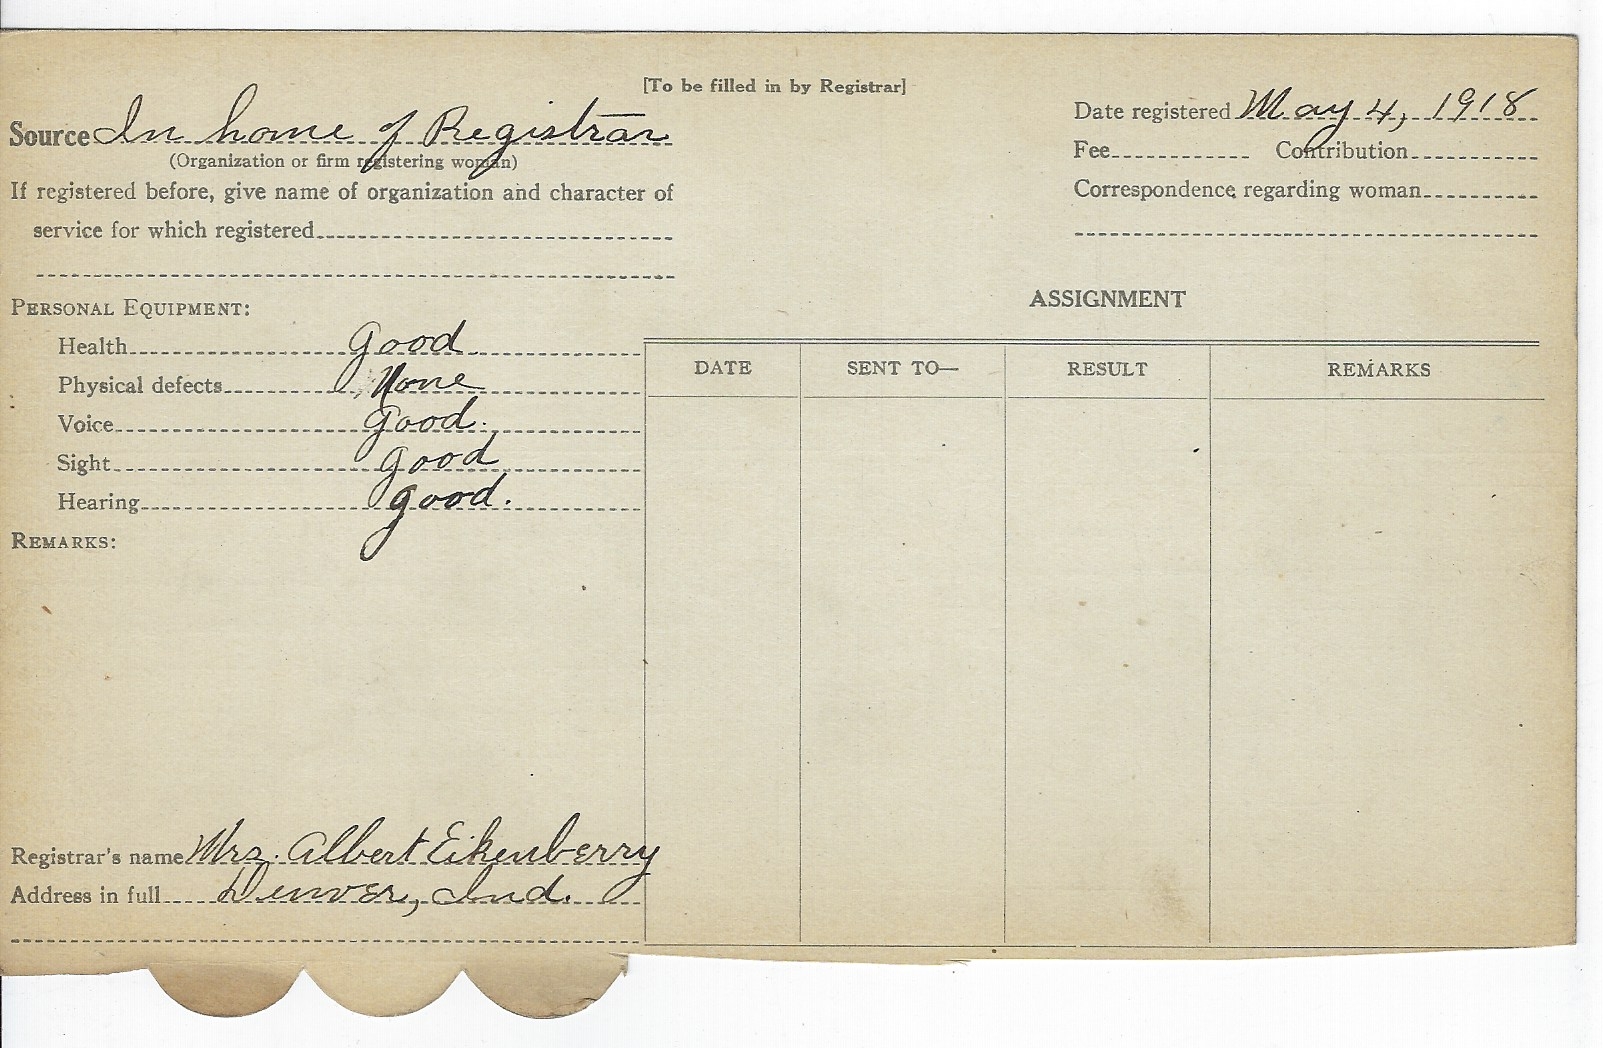 [To be filled in by Registrar]
Source In home of Registrar
(Organization or firm registering woman)
If registered before, give name of organization and character of
service for which registered
Date registered May 4, 1918
Fee Contribution
Correspondence regarding woman
PERSONAL EQUIPMENT:
Health Good
Physical defects None
Voice Good.
Sight Good
Hearing good.
REMARKS:
ASSIGNMENT
DATE SENT TO— RESULT REMARKS
Registrar's name Mrs. Albert Eikenberry
Address in full Denver, Ind.